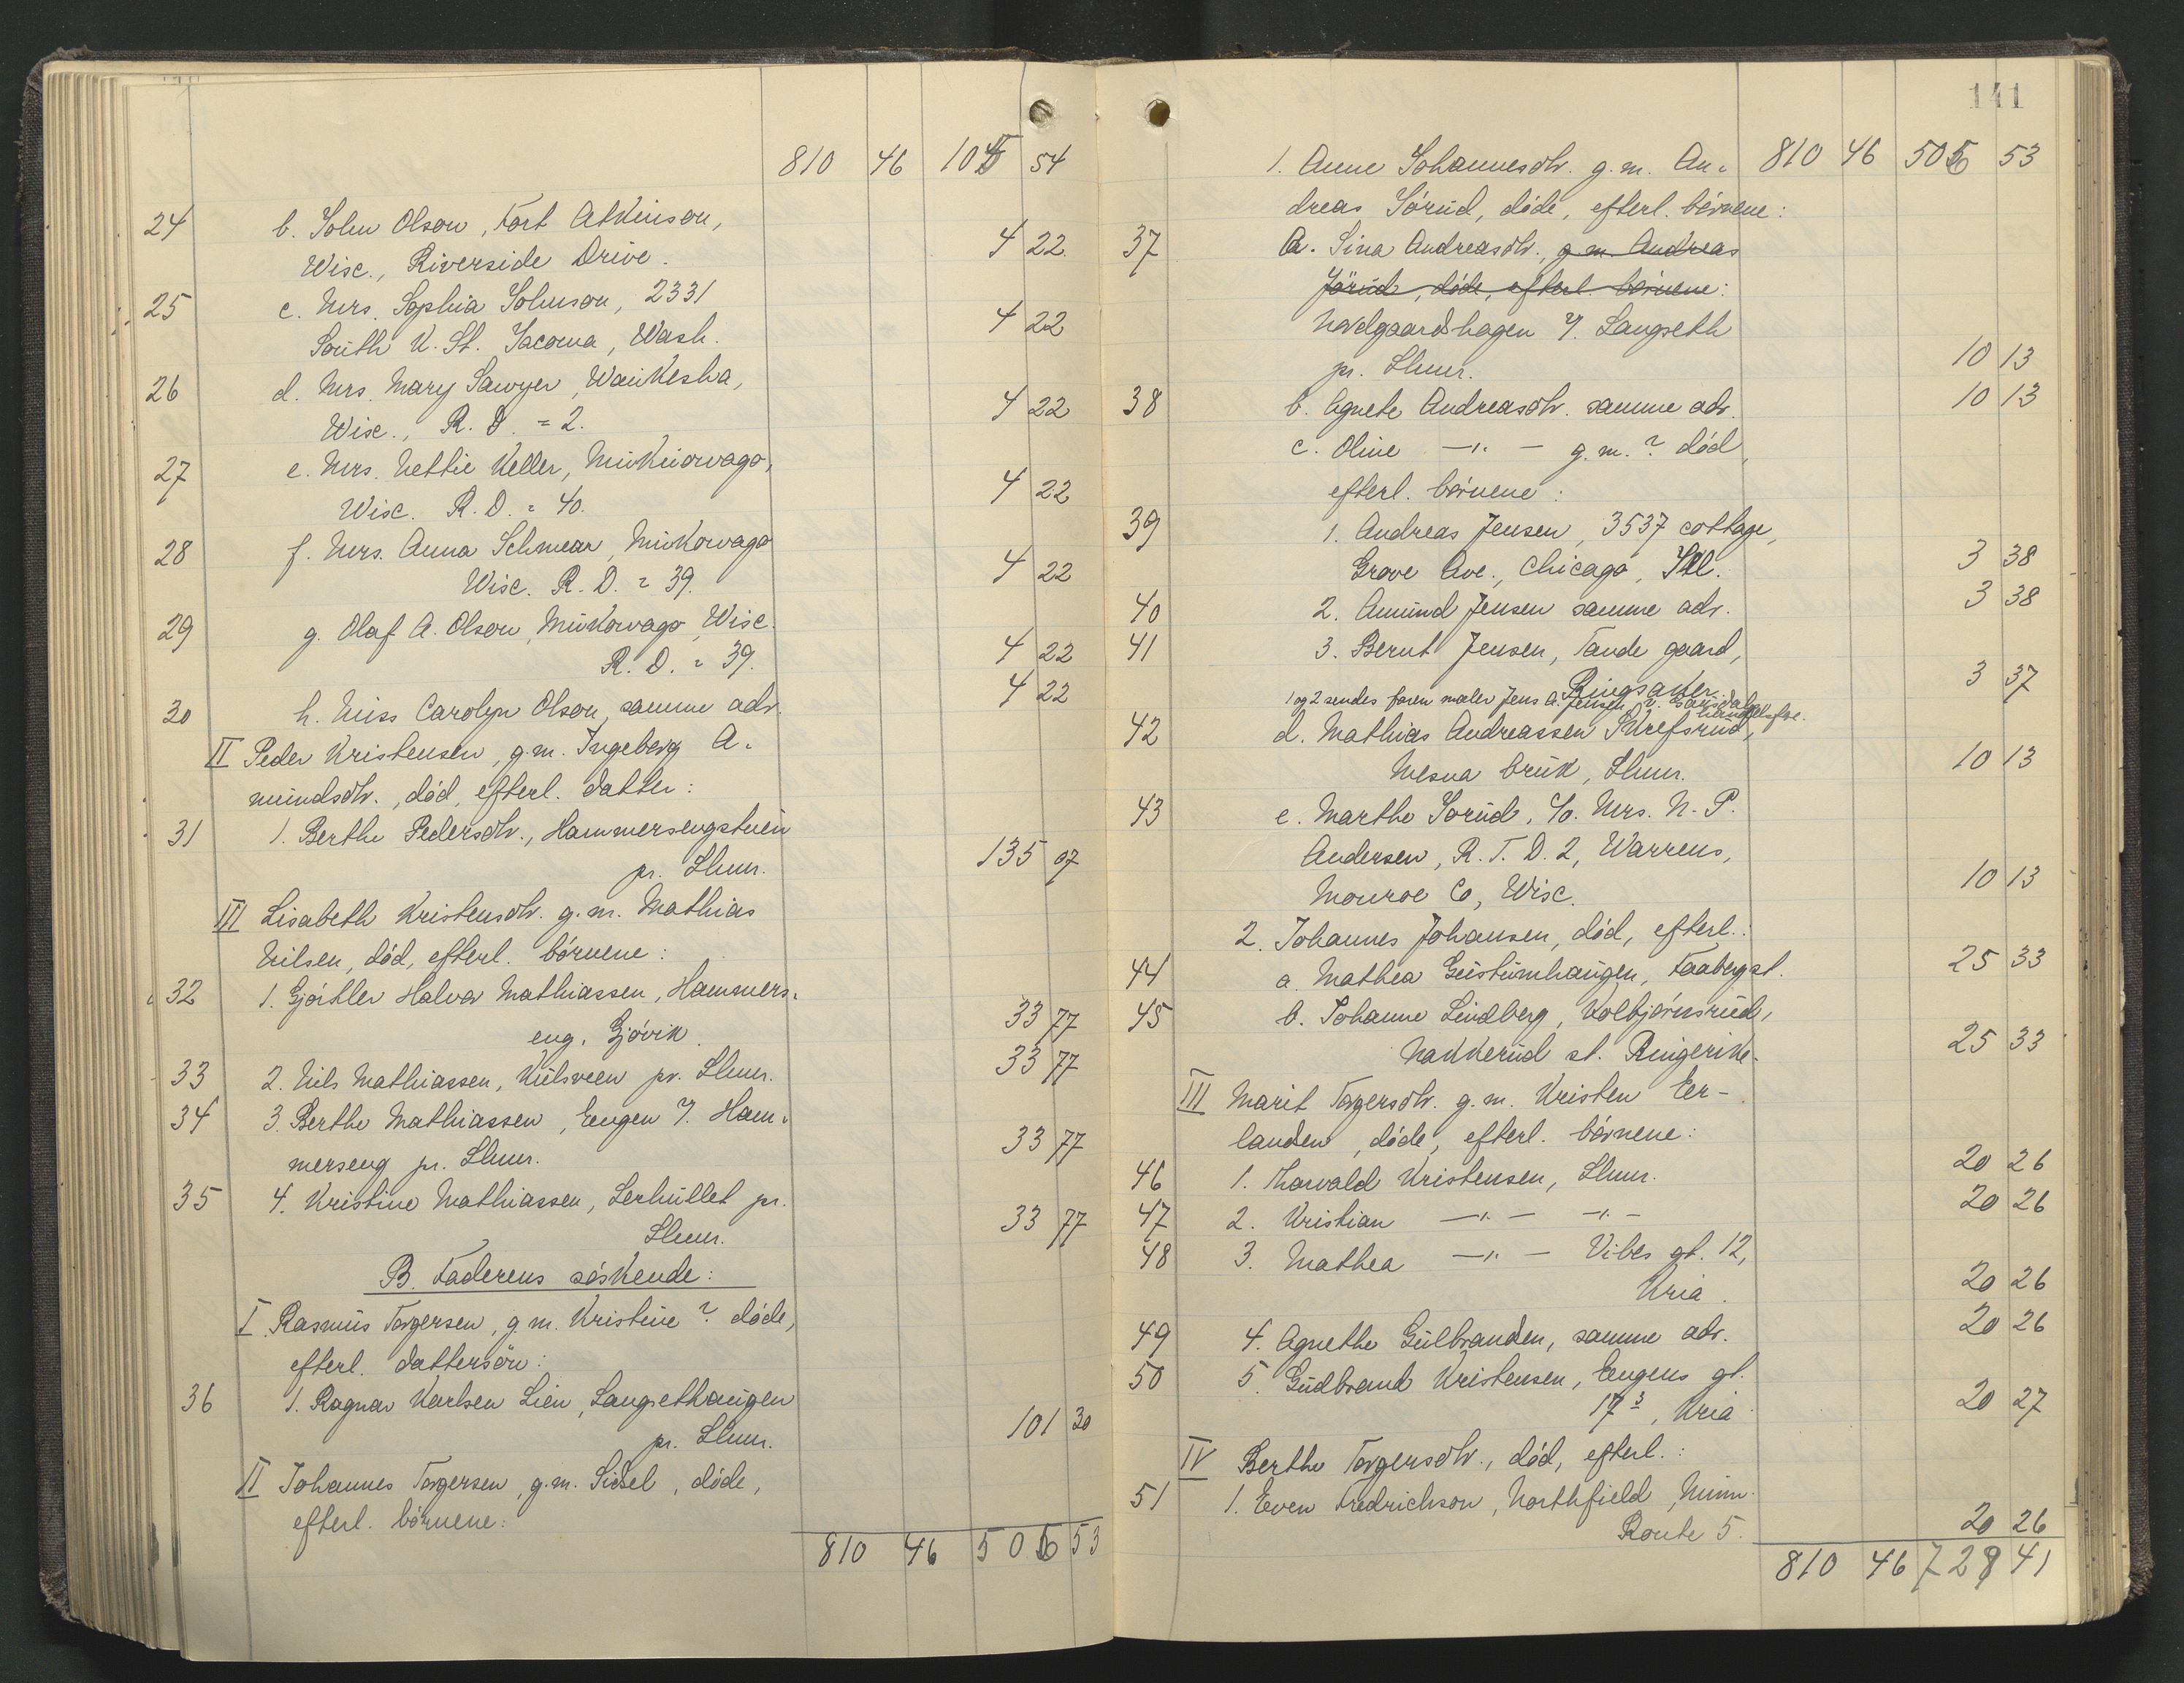 810 46 105 54
24 b. John Olson, Fort Atkinson,
Wisc., Riverside Drive. 4 22
25 c. Mrs. Sophia Johnson, 2331
South K. St. Tacoma, Wash. 4 22
26 d. Mrs. Mary Sawyer, Waukesha,
Wisc., R. D. = 2. 4 22
27 e. Mrs. Nettie Keller, Mukwowago,
Wisc. R. D. = 40. 4 22
28 f. Mrs. Anna Schmear, Mukowago
Wisc. R. D. = 39. 4 22
29 g. Olaf A. Olson, Mukowago, Wisc.
R. D. = 39. 4 22
30 h. Miss Carolyn Olson, samme adr. 4 22
II Peder Kristensen, g.m. Ingeborg A-
mundsdtr., död, efterl. datter:
31 1. Berthe Pedersdtr., Hammersengstuen
pr. Lhmr. 135 07
III Lisabeth Kristensdtr. g.m. Mathias
Nilsen, död, efterl. börnene:
32 1. Gjörtler Halvor Mathiassen, Hammers-
eng, Gjövik. 33 77
33 2. Nils Mathiassen, Kulsveen pr. Lhmr. 33 77
34 3. Berthe Mathiassen, Engen i/ Ham-
merseng pr. Lhmr. 33 77
35 4. Kristine Mathiassen, Lerhullet pr.
Lhmr. 33 77
B. Faderens söskende:
I Rasmus Torgersen, g.m. Kristine ? döde,
efterl. dattersön:
36 1. Ragnar Karlsen Lien, Langsethaugen
pr. Lhmr. 101 30
II Johannes Torgersen, g.m. Sidsel, döde,
efterl. börnene:
810 46 506 53
141
1. Anne Johannesdtr. g.m. An- 810 46 506 53
dreas Sörud, döde, efterl. börnene:
37 a. Sina Andreasdtr., g.m. Andreas
Jörud, döde, efterl. börnene:
Nordgaardshagen i/ Langseth
pr. Lhmr. 10 13
38 b. Agnete Andreasdtr. samme adr. 10 13
c. Oline —"— g.m. ? död,
efterl. börnene:
39 1. Andreas Jensen, 3537 cottage,
Grove Ave., Chicago, Ill. 3 38
40 2. Amund Jensen samme adr. 3 38
41 3. Bernt Jensen, Tande gaard,
Ringsaker. 3 37
1 og 2 sendes faren maler Jens A. Jensen, v. Larsdal
42 d. Mathias Andreassen Skrefsrud,
Mesna bruk, Lhmr. 10 13
43 e. Marthe Sorud, c/o. Mrs. N. P.
Andersen, R. T. D. 2, Warrens,
Monroe Co, Wisc. 10 13
2. Johannes Johansen, död, efterl.:
44 a. Mathea Gustumhaugen, Faaberg st. 25 33
45 b. Johanne Lindberg, Kolbjörnsrud,
Nakkerud st. Ringerike. 25 33
III Marit Torgersdtr. g.m. Kristen Eer-
landen, döde, efterl. börnene:
46 1. Thorvald Kristensen, Lhmr. 20 26
47 2. Kristian —"— —"— 20 26
48 3. Mathea —"— Vibes gt. 12,
Kria. 20 26
49 4. Agnethe Gulbranden, samme adr. 20 26
50 5. Gudbrand Kristensen, Eugens gt.
17³, Kria. 20 27
IV Berthe Torgersdtr., död, efterl.:
51 1. Even Fredrichson, Northfield, Minn.
Route 5. 20 26
810 46 729 41